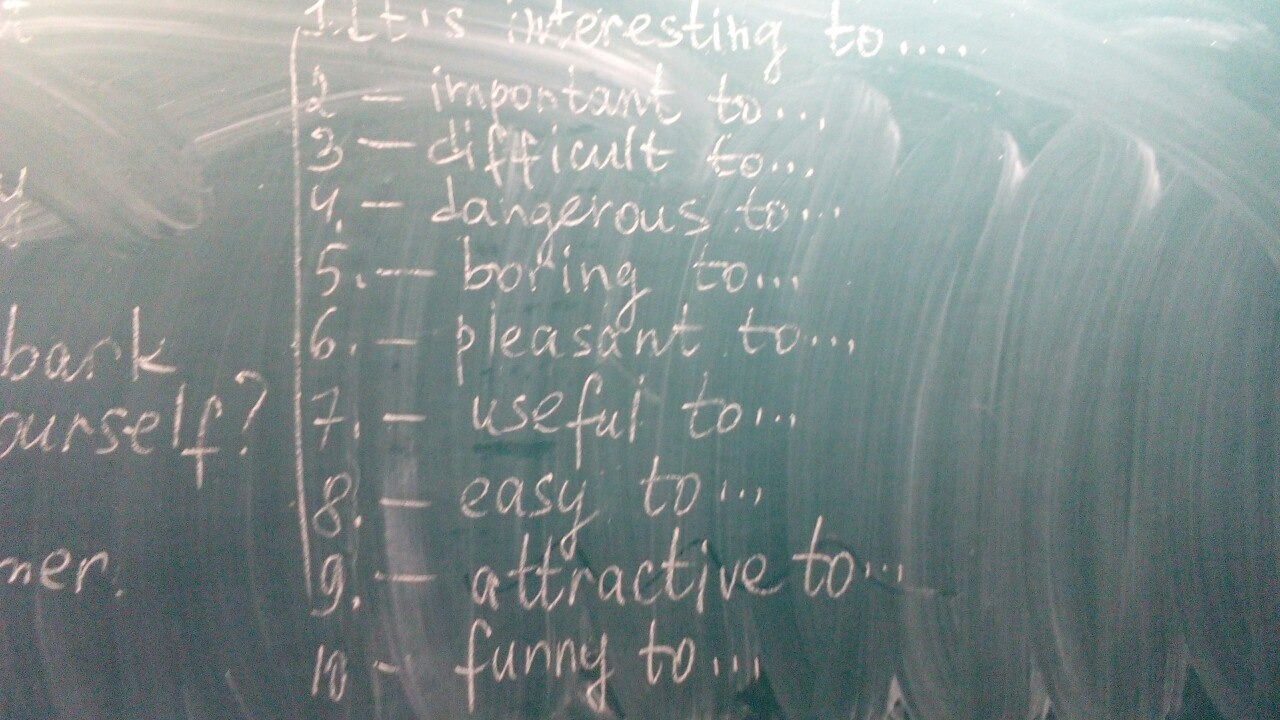 1. It's interesting to.....
2 — important to...
3 — difficult to...
4. — dangerous to...
5. — boring to...
6. — pleasant to...
7. — useful to...
8. — easy to...
9. — attractive to...
10 — funny to...
bark
ourself?
mer.